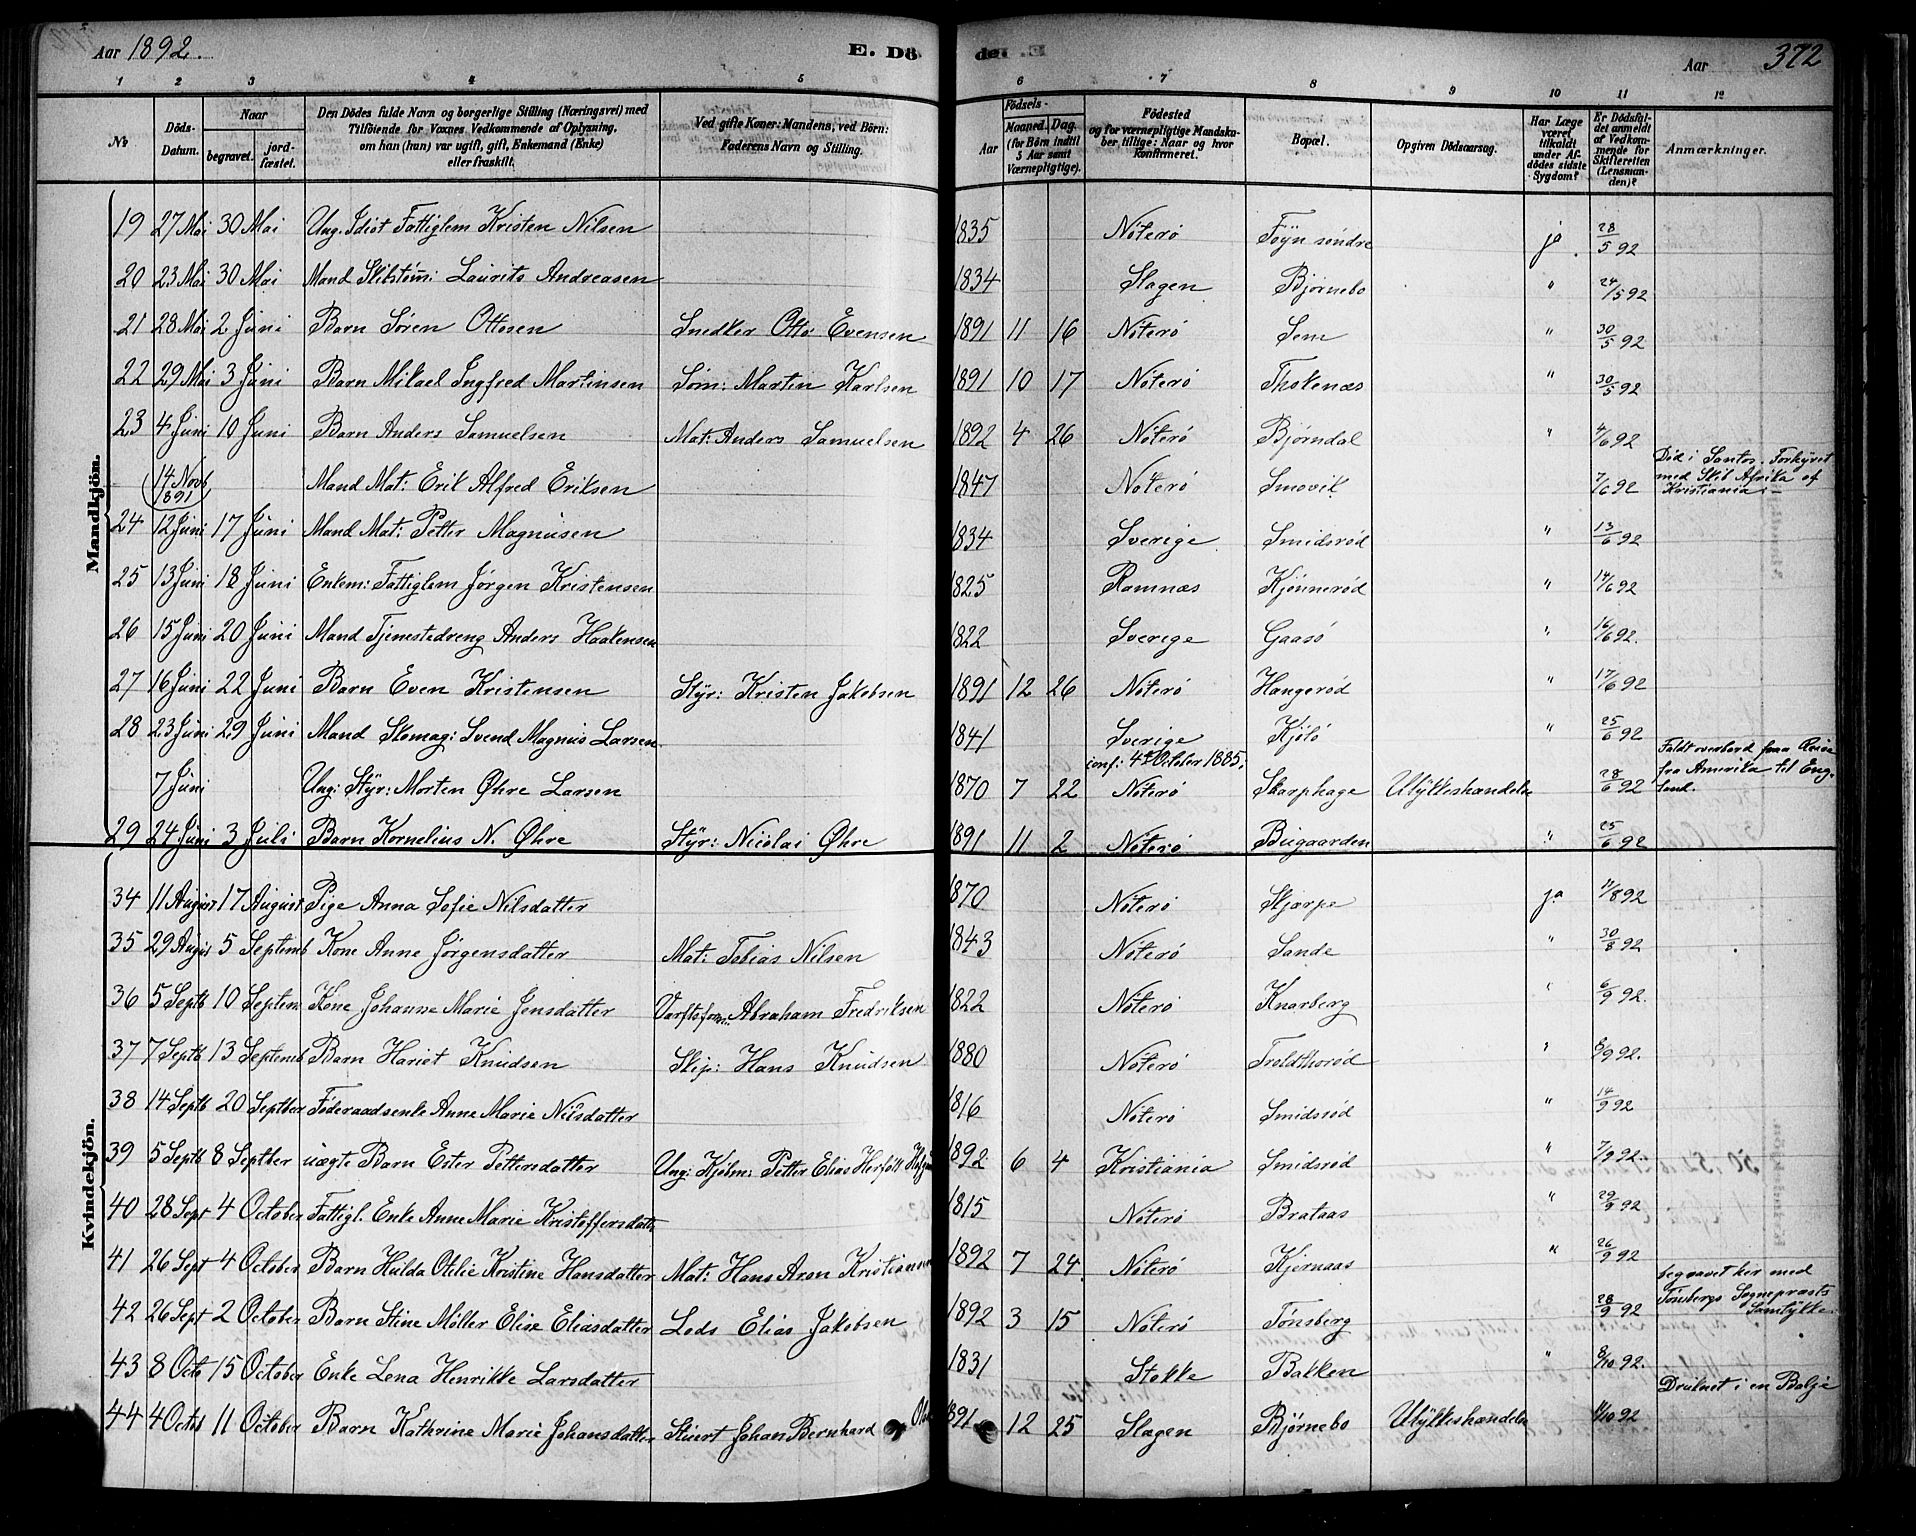 Aar 1892.
E. Dö
de
Aar 372
1 2 3 4 5 6 7 8 9 10 11 12
No
Döds-Datum.
Naar
begravet.
jord-fæstet.
Den Dödes fulde Navn og borgerlige Stilling (Næringsvei) med
Tilföiende for Voxnes Vedkommende af Oplysning,
om han (hun) var ugift, gift, Enkemand (Enke)
eller fraskilt.
Ved gifte Koner: Mandens, ved Börn:
Faderens Navn og Stilling.
Födsels-
Aar
Maaned. Dag.
(for Börn indtil 5 Aar samt Værnepligtige).
Födested
og for værnepligtige Mandskaber, tillige: Naar og hvor Konfirmeret.
Bopæl.
Opgiven Dödsaarsag.
Har Læge været tilkaldt under Afdödes sidste Sygdom?
Er Dödsfaldet anmeldt af Vedkommende for Skifteretten (Lensmanden)?
Anmærkninger.
Mandkjön.
19 27 Mai 30 Mai Ung. Idiot Fattiglem Kristen Nilsen 1835 Nøterø Føyn søndre ja 28/5 92
20 23 Mai 30 Mai Mand Skibstøm: Laurits Andreasen 1834 Slagen Bjørnebo " 24/5 92
21 28 Mai 2 Juni Barn Søren Ottosen Snedker Otto Evensen 1891 11 16 Nøterø Sem " 30/5 92
22 29 Mai 3 Juni Barn Mikael Ingfred Martinsen Søm: Martin Karlsen 1891 10 17 Nøterø Thokenæs " 30/5 92
23 4 Juni 10 Juni Barn Anders Samuelsen Mat: Anders Samuelsen 1892 4 26 Nøterø Bjørndal " 4/6 92
(14 Novb 1891) Mand Mat: Erik Alfred Eriksen 1847 Nøterø Smovik 7/6 92 Død i Santos. Forhyret
med Skib Afrika af
Kristiania
24 12 Juni 17 Juni Mand Mat: Petter Magnusen 1834 Sverige Smidsrød " 13/6 92
25 13 Juni 18 Juni Enkem: Fattiglem Jørgen Kristensen 1825 Ramnæs Kjønnerød " 14/6 92
26 15 Juni 20 Juni Mand Tjenestedreng Anders Haakensen 1822 Sverige Gaasø " 16/6 92.
27 16 Juni 22 Juni Barn Even Kristensen Styr: Kristen Jakobsen 1891 12 26 Nøterø Hangerød " 17/6 92
28 23 Juni 29 Juni Mand Skomag: Svend Magnus Larsen 1841 Sverige KjøLø " 25/6 92
7 Juni Ung: Styr: Morten Øhre Larsen 1870 7 22 conf: 4 October 1885. Nøterø Skarphage Ulykkeshændelse 28/6 92 Faldt overbord paa Reise
fra Amerika til Eng-
land.
29 24 Juni 3 Juli Barn Kornelius N. Øhre Styr: Nicolai Øhre 1891 11 2 Nøterø Bugaarden " 25/6 92
Kvindekjön.
34 11 August 17 August Pige Anna Sofie Nilsdatter 1870 Nøterø Skjærpe ja 11/8 92
35 29 August 5 Septemb Kone Anne Jørgensdatter Mat: Tobias Nilsen 1843 Nøterø Sande " 30/8 92
36 5 Septb 10 Septem Kone Johanne Marie Jensdatter Værftsform: Abraham Fredriksen 1822 Nøterø Knarberg " 6/9 92.
37 7 Septb 13 Septemb Barn Hariet Knudsen Skip: Hans Knudsen 1880 Nøterø Troldthorød " 8/9 92.
38 14 Septb 20 Septber Føderaadsenke Anne Marie Nilsdatter 1816 Nøterø Smidsrød " 14/9 92
39 5 Septb 8 Septber uægte Barn Ester Pettersdatter Ung: Kjøbm: Petter Elias 1892 6 4 Kristiania Smidsrød " 7/9 92.
40 28 Sept 4 October Fattigl. Enke Anne Marie Kristoffersdatter 1815 Nøterø Brataas " 29/9 92
41 26 Sept 4 October Barn Hulda Otilie Kristine Hansdatter Mat: Hans Aron Kristiansen 1892 7 24 Nøterø Kjernaas " 26/9 92
42 26 Sept 2 October Barn Stine Møller Elise Eliasdatter Lods Elias Jakobsen 1892 3 15 Nøterø Tønsberg 28/9 92 begravet her med
Tønsbergs Sognepræsts
Samtykke.
43 8 Octo 15 October Enke Lena Henrikke Larsdatter 1831 Stokke Bakken " 8/10 92.
44 4 Octob 11 October Barn Kathrine Marie Johansdatter Stuert Johan Bernhard 1891 12 25 Slagen Bjørnebo Ulykkeshændelse 4/10 92 Druknet i en Balje